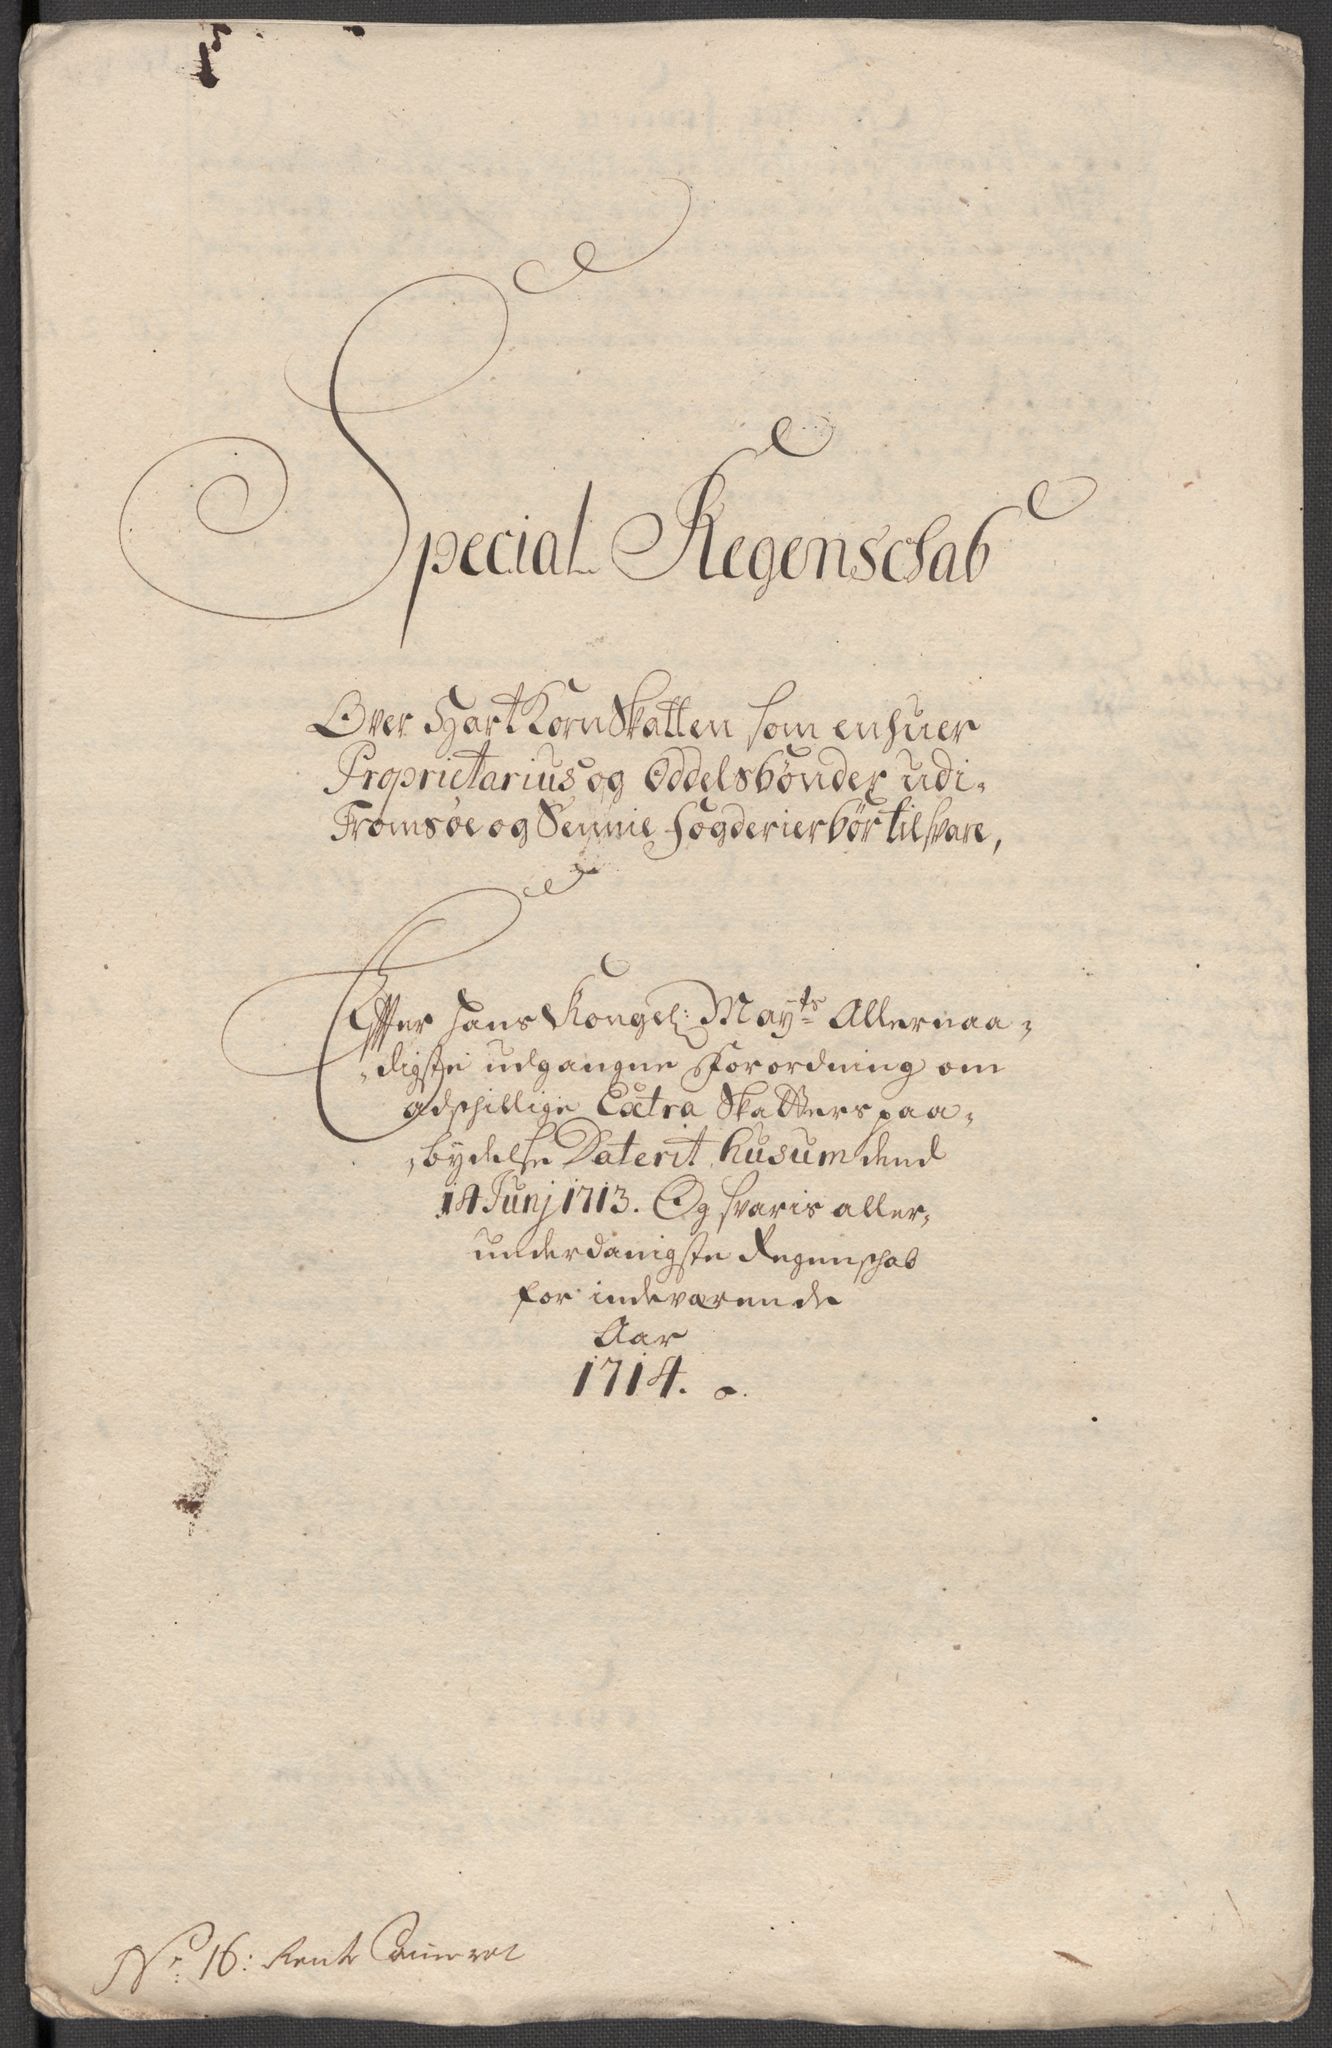 Special Regenschab
Over Hart Korn Skatten som enhuer
Proprietarius og Oddelsbønder udi-
Tromsøe og Sennie Fogderier bør til svare,
Effter Hans Kongel: May:ts Allernaa-
digste udgangne Forordning om
adschillige Extra Skatters paa-
bydelse Daterit Husum dend
14 Junj 1713. Og svaris aller-
underdanigste Regenschab
for indeværende
Aar
1714.
No: 16: Rente Cammeret